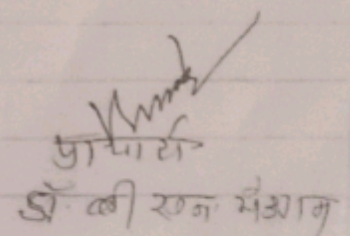 प्राचार्य
डॉ. व्ही एन मेश्राम